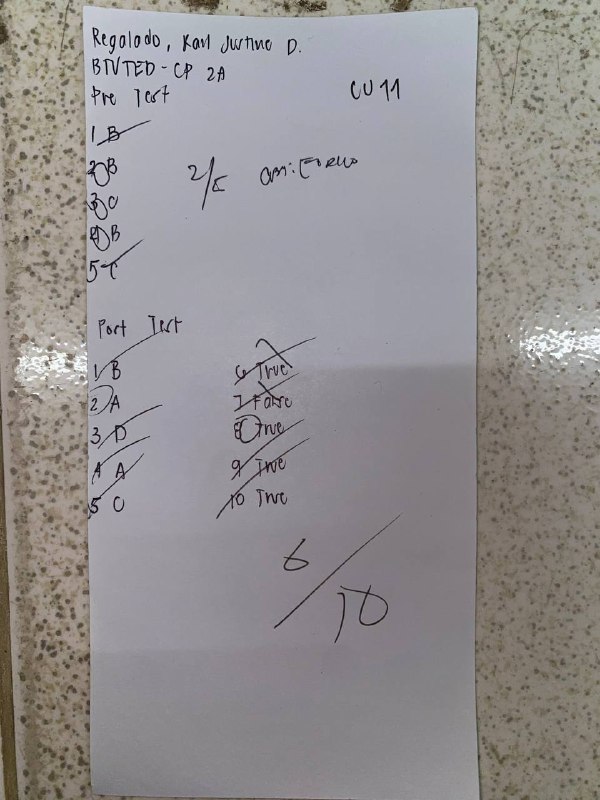 Regalado, Karl Justine D.
BTVTED - CP 2A
Pre Test
CU 11
1 B
2 B
3 C
4 B
5 C
2/5
Post Test
1 B
2 A
3 D
4 A
5 C
6 True
7 False
8 True
9 True
10 True
6/10